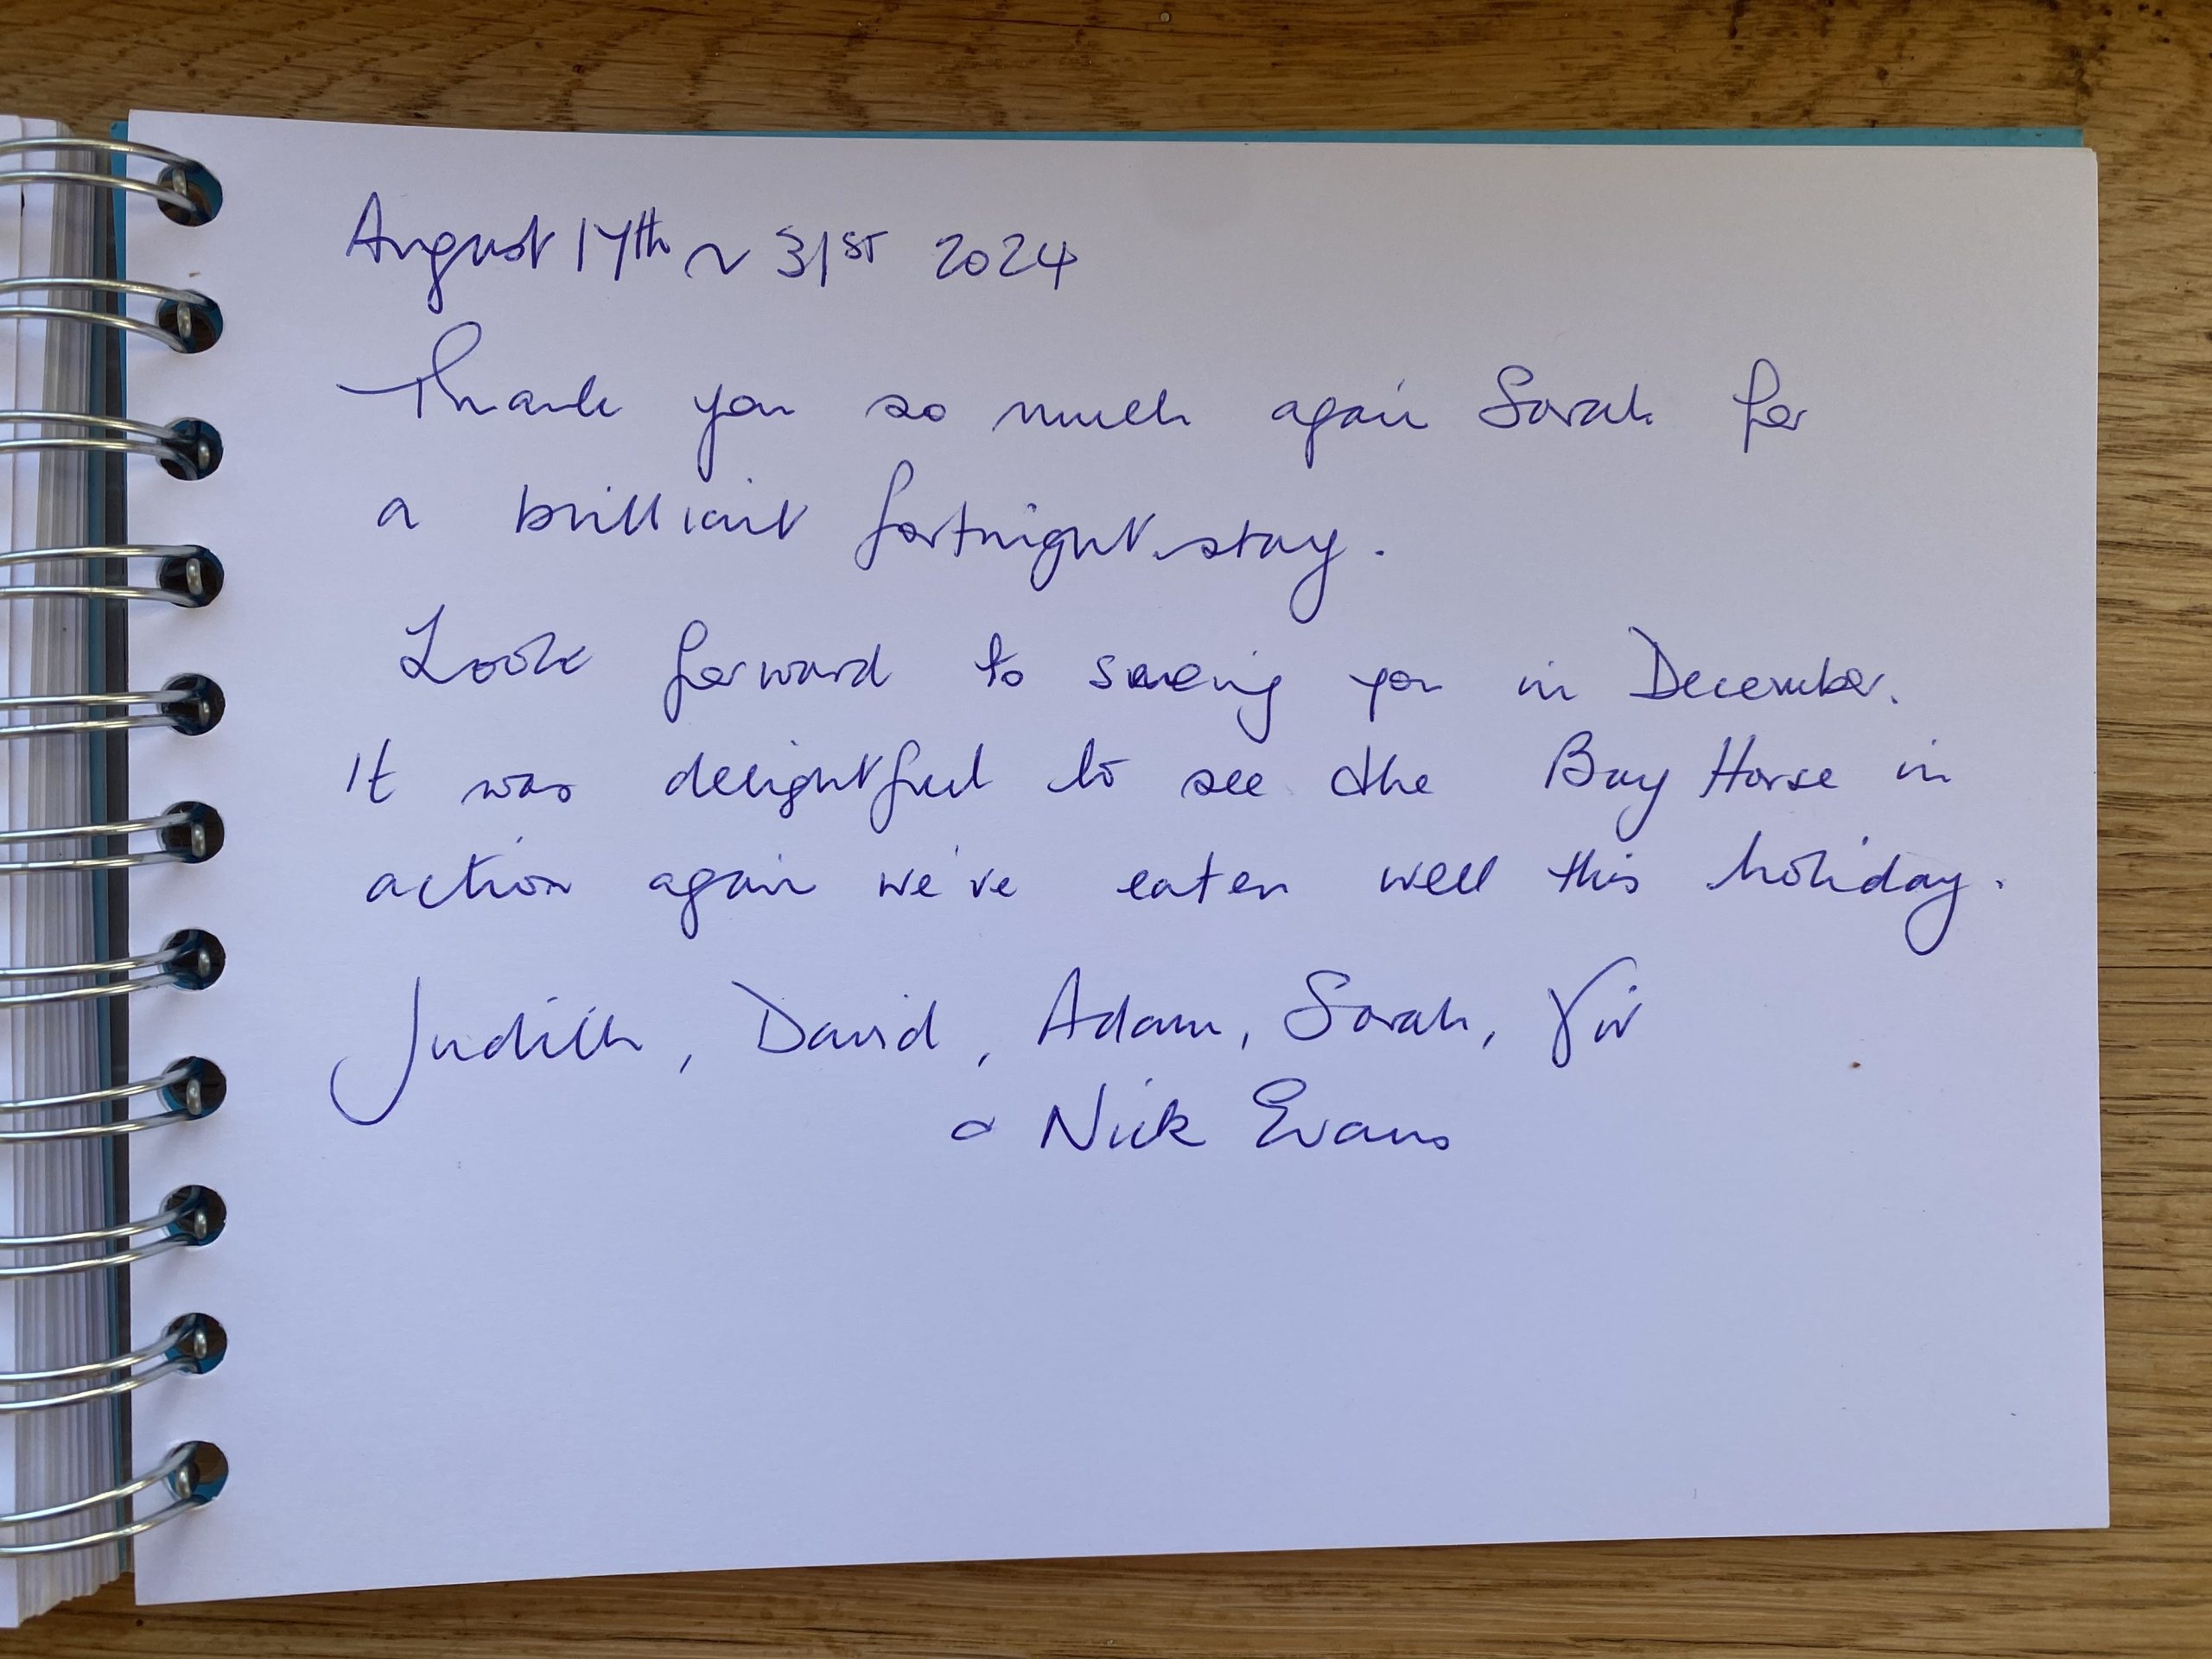 August 17th ~ 31st 2024
Thank you so much again Sarah for
a brilliant fortnight stay.
Look forward to seeing you in December.
It was delightful to see the Bay Horse in
action again we've eaten well this holiday.
Judith, David, Adam, Sarah, Viv
& Nick Evans